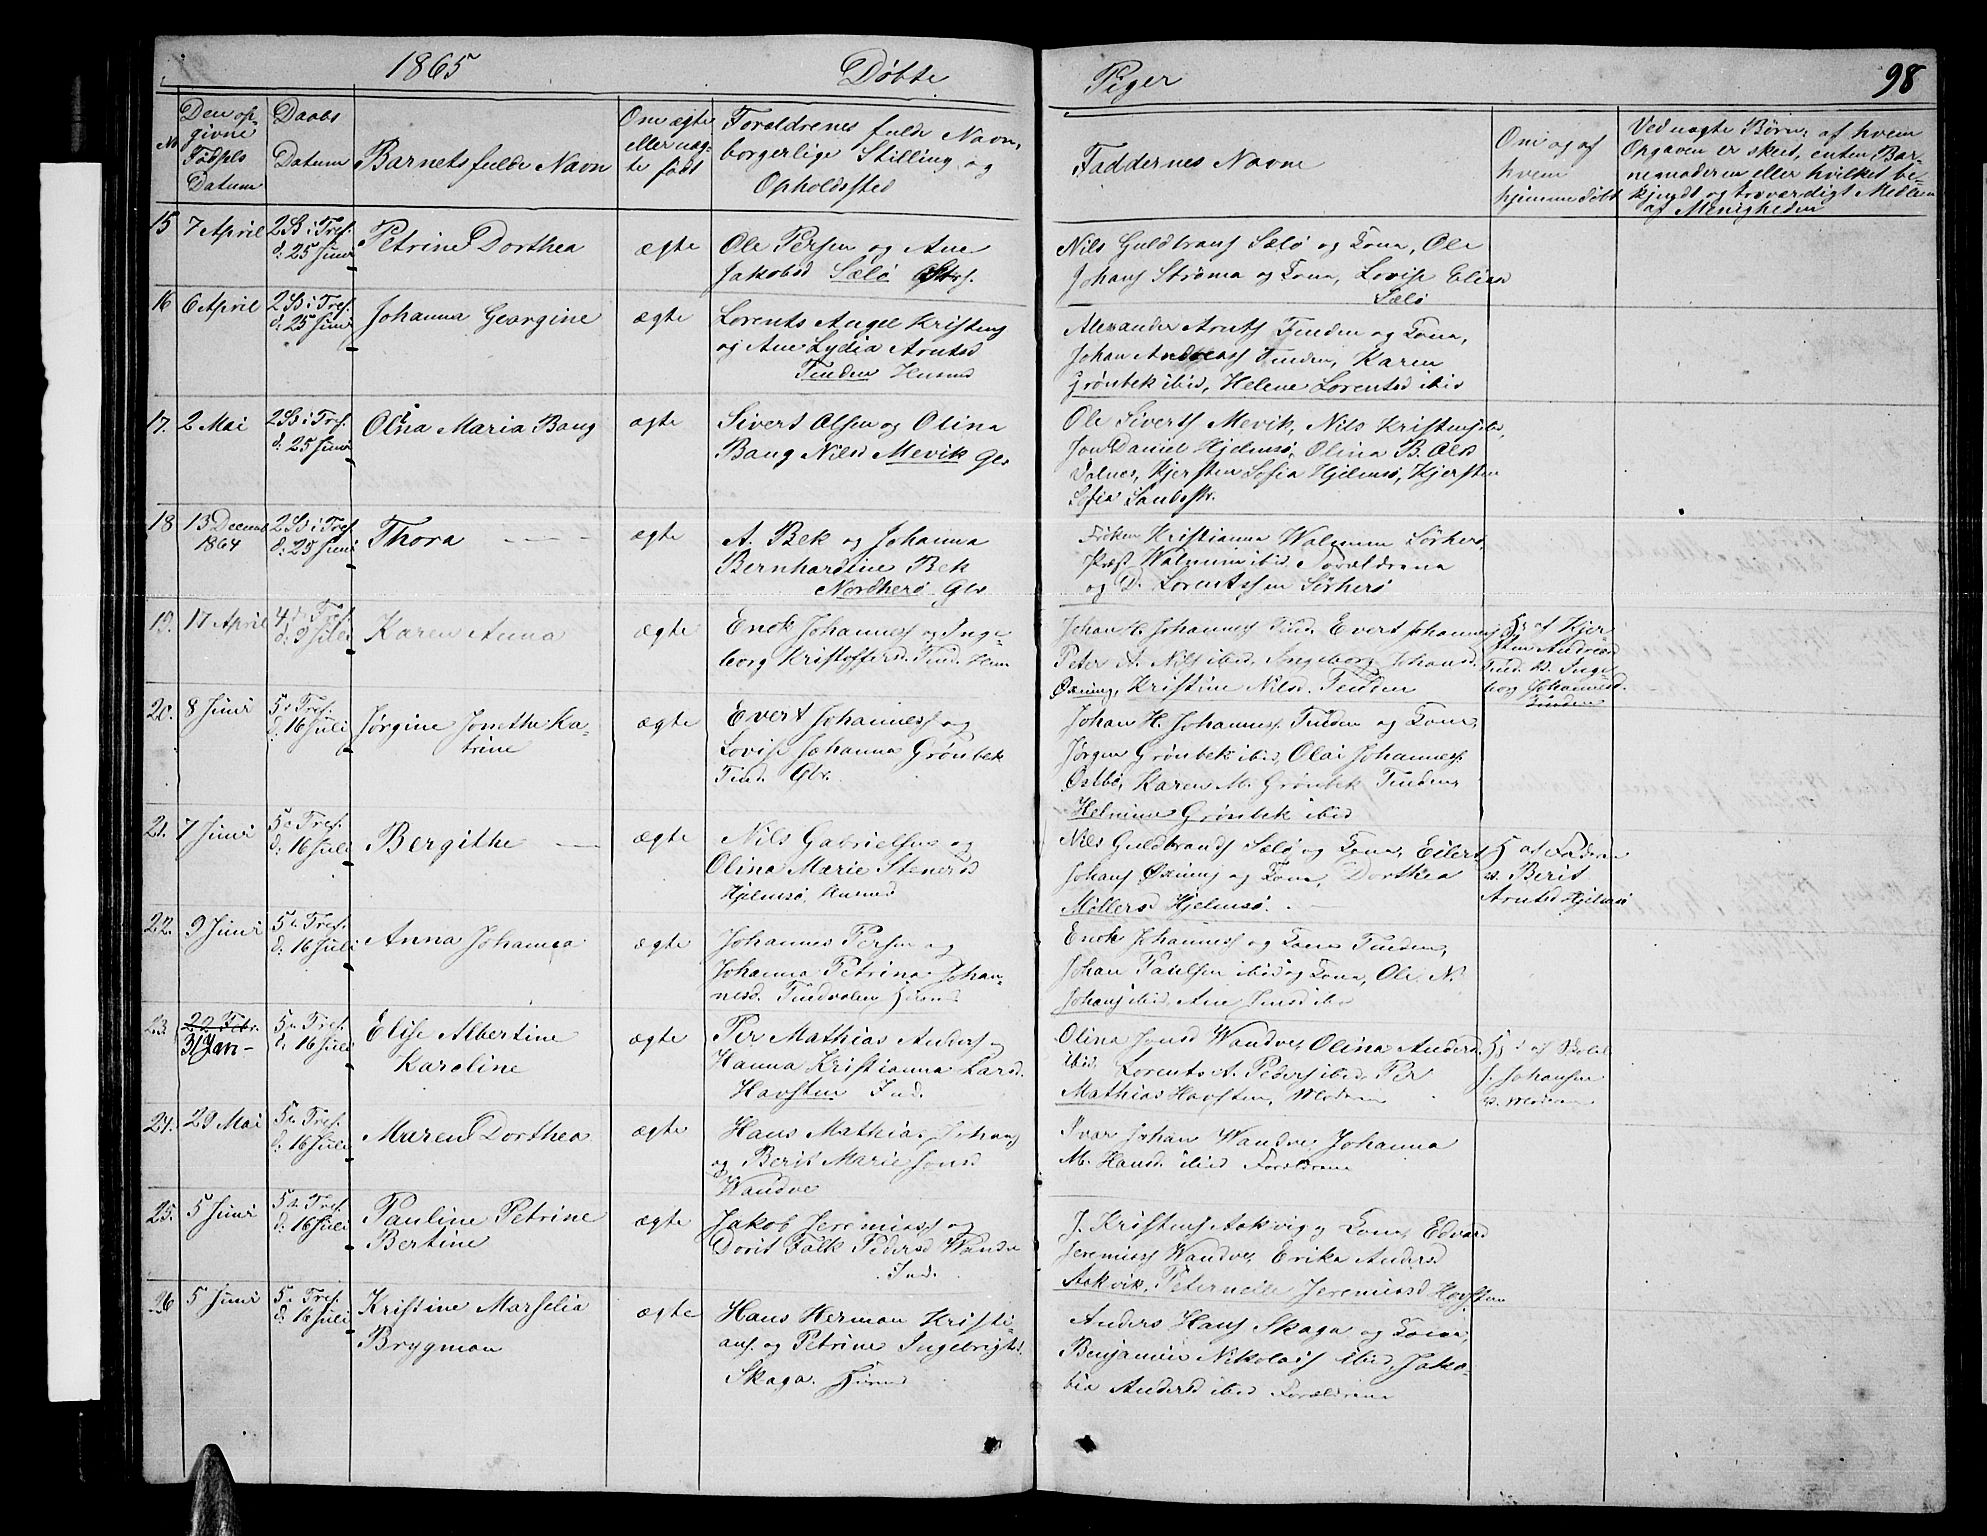 1865 Døbte Piger 98
No
Den opgivne Fødsels Datum
Daabs Datum
Barnets fulde Navn
Om ægte eller uægte født
Forældrenes fulde Navn, borgerlige Stilling og Opholdssted
Faddernes Navne
Om og af hvem hjemmedøbt
Ved uægte Børn, af hvem Opgaven er skeet, enten Barnemoderen eller hvilket bekjendt og troværdigt Medlem af Menigheden
15 7 April 2 S. i Tref. d: 25 Juni Petrine Dorthea ægte
Ole Persen og Ane
Jakobsd Sælø
Nils Guldbrans Sælø og Kona, Ole
Johans Strøma og Kona, Lovise Eliasd
Sælø
16 6 April 2 S. i Tref. d: 25 Juni Johanna Georgine ægte
Lorents Angel Kristens
og Ane Lydia Arntsd
Tenden Husmd
Alexander Arnts Tinden og Kona,
Johan Andreas Tinden, Karen
Grønbek ibid, Helene Lorentsd ibid
17. 2 Mai 2 S. i Tref. d: 25 Juni Olina Maria Bang ægte
Sivert Olsen og Olina
Bang Nilsd Mevik Gbr
Ole Siverts Mevik, Nils Kristens ibd,
Jon Daniel Hjelmsø, Olina B. Olsd
Valnes, Kjersten Sofia Hjelmsø, Kjersten
Sofia Sandstr.
18 13 Decemb 1864 2 S. i Tref d: 25 Juni Thora ægte
A. Bek og Johanna
Bernhardine Bek
Nordherø Gbr
Frøken Kristianna Walnum Sørherø,
Præst Walnum ibid, Forældrene
og D. Lorentssen Sørherø
19. 17 April 4 S. Tref. d: 9 Juli Karen Anna ægte
Enok Johanness og Inge-
borg Kristoffersd. Tind. Husm
Johan H. Johanness Tind. Evert Johanness
Peter A. Nils ibid, Ingeborg Johansd.
Øxning, Kristine Nilsd. Tenden
H: af Kjer-
sten Andreasd
Tind. B. Inge-
borg Johannesd.
Tinden
20. 8 Juni 5 S. Tref. d. 16 Juli Jørgine Jonethe Ka-
trine ægte
Evert Johanness og
Lovise Johanna Grønbek
Tind. Gbr.
Johan H. Johanness. Tinden og Kona,
Jørgen Grønbek ibid, Olai Johanness.
Østbø, Karen M. Grønbek Tinden,
Helmine Grønbek ibid
21. 7 Juni 5 S. Tref. d: 16 Juli Bergithe ægte
Nils Gabrielsen og
Olina Marie Stenersd
Hjelmsø, Husmd
Nils Guldbrands Sælø og Kona, Eilert
Johans Øxning og Kona, Dorthea
Møllersd Hjelmsø.
H af Faderen
v. Berit
Arntsd Hjelmsø
22. 9 Juni 5 S. Tref. d. 16 Juli Anna Johanna ægte
Johannes Persen og
Johanna Petrina Johan-
nesd. Tindvalen Husmd
Enok Johanness og Kona Tinden,
Johan Paulsen ibid og Kona, Ole N.
Johans ibid. Ane Jensd ibid
23. 22 Febr. 31 Jan - 5 S. Tref. d. 16 Juli Elise Albertine
Karoline ægte
Per Mathias Anders og
Hanna Kristianna Larsd.
Havsten Ind.
Olina Jonsd Wandve, Olina Andersd.
ibid. Lorents A. Peders ibid. Per
Mathias Havsten, Moderen
H: af
J. Johansen
v. Moderen
24. 29 Mai 5 S. Tref. d: 16 Juli Maren Dorthea ægte
Hans Mathias Johans
og Berit Marie Jonsd
Wandve
Ivar Johan Wandve Johanna
M. Hansd. ibid Forældrene
25. 5 Juni 5 S. Tref. d: 16 Juli Pauline Petrine
Bertine ægte
Jakob Jeremiass og
Dorit Falk Pedersd Wandve
Ind.
J. Kristens Aakvig og Kona, Edvard
Jeremiass Wandve, Erika Andersd
Aakvik, Peternelle Jeremiasd Havsten
26 5 Juni 5 S. Tref. d: 16 Juli Kristine Marselia
Brygman ægte
Hans Herman Kristi-
ans. og Petrine Ingebrigtsd.
Skaga. Husmd
Anders Hans Skaga og Kona,
Benjamin Nikolais ibid, Jako-
bia Andersd ibid Forældrene